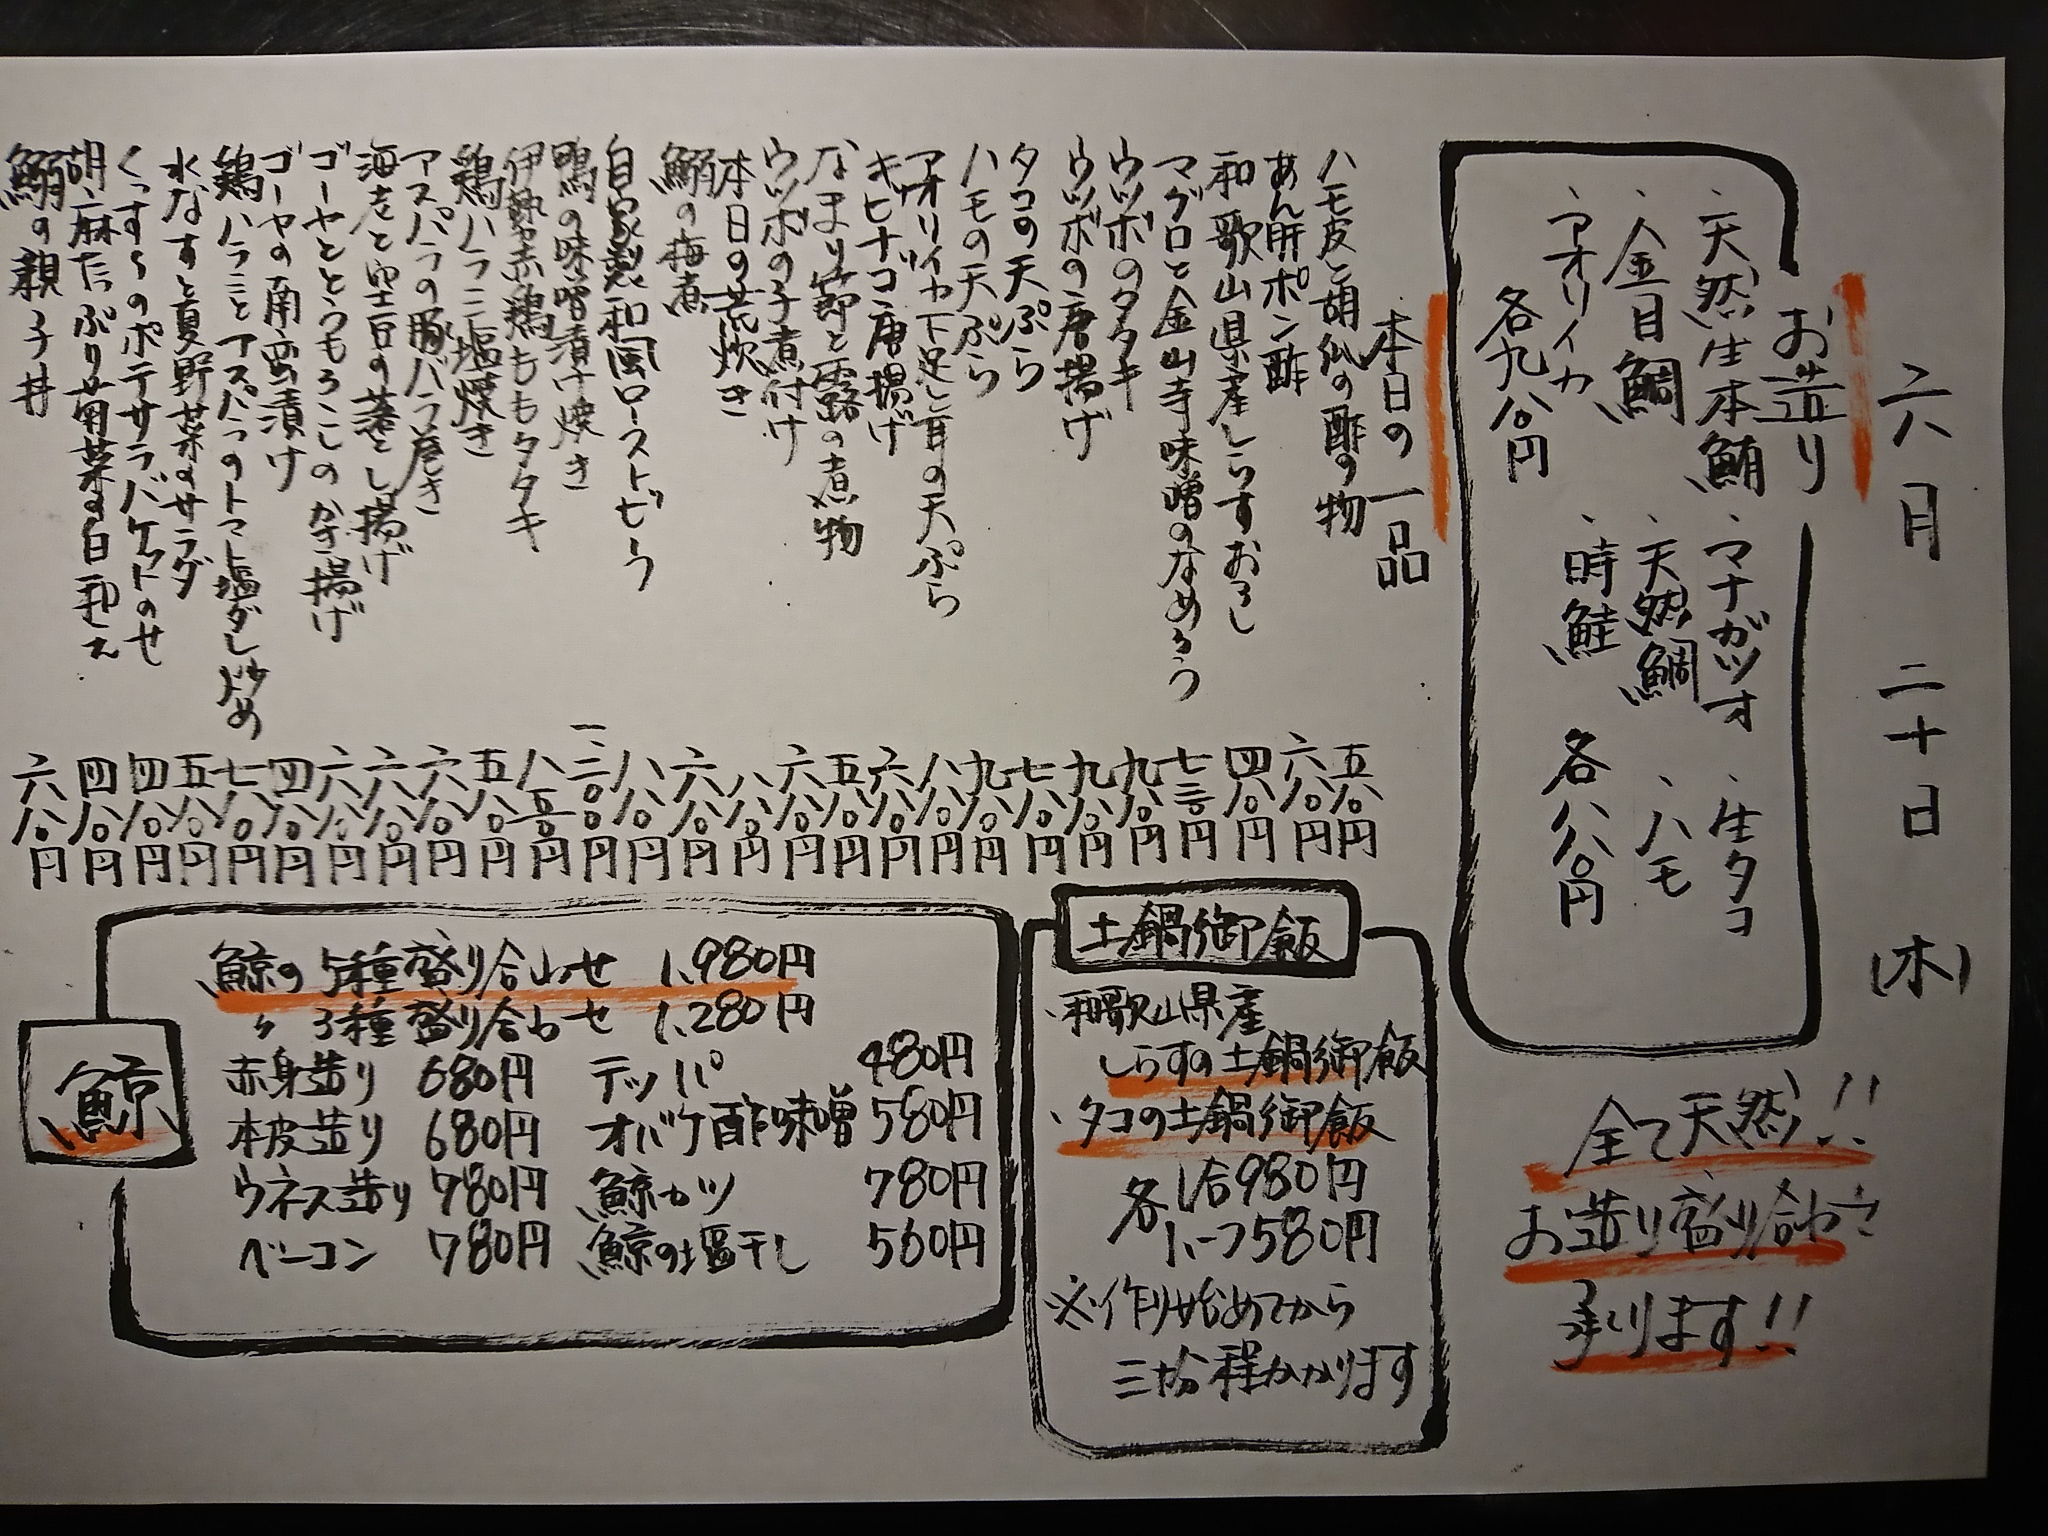 六月二十日(木)
お造り
、天然生本鮪 、マナガツオ 、生タコ
、金目鯛 、天然鯛 、ハモ
、アオリイカ 、時鮭 各八八〇円
各九八〇円
全て天然!!
お造り盛り合わせ
承ります!!
本日の一品
ハモ皮と胡瓜の酢の物 五八〇円
あん肝ポン酢 六八〇円
和歌山県産しらすおろし 四八〇円
マグロと金山寺味噌のなめろう 七三〇円
ウツボのタタキ 九八〇円
ウツボの唐揚げ 九八〇円
タコの天ぷら 七八〇円
ハモの天ぷら 九八〇円
アオリイカ下足と耳の天ぷら 八八〇円
キビナゴ唐揚げ 六八〇円
なまり節と露の煮物 五八〇円
ウツボの子煮付け 六八〇円
本日の荒炊き 八八〇円
鰯の梅煮 六八〇円
自家製和風ローストビーフ 八八〇円
鴨の味噌漬け焼き 一二〇〇円
伊勢赤鶏ももタタキ 八五〇円
鶏ハラミ塩焼き 五八〇円
アスパラの豚バラ巻き 六八〇円
海老と空豆の落とし揚げ 六八〇円
ゴーヤととうもろこしのかき揚げ 六八〇円
ゴーヤの南蛮漬け 四八〇円
鶏ハラミとアスパラのトマト塩ダレ炒め 七八〇円
水なすと夏野菜のサラダ 五八〇円
くっすーのポテサラバケットのせ 四八〇円
胡麻たっぷり菊菜の白和え 四八〇円
鰯の親子丼 六八〇円
土鍋御飯
、和歌山県産
しらすの土鍋御飯
、タコの土鍋御飯
各1合980円
ハーフ580円
※作り始めてから
三十分程かかります
鯨
鯨の5種盛り合わせ 1,980円
〃 3種盛り合わせ 1,280円
赤身造り 680円 テッパ 480円
本皮造り 680円 オバケ酢味噌 580円
ウネス造り 780円 鯨カツ 780円
ベーコン 780円 鯨の塩干し 560円